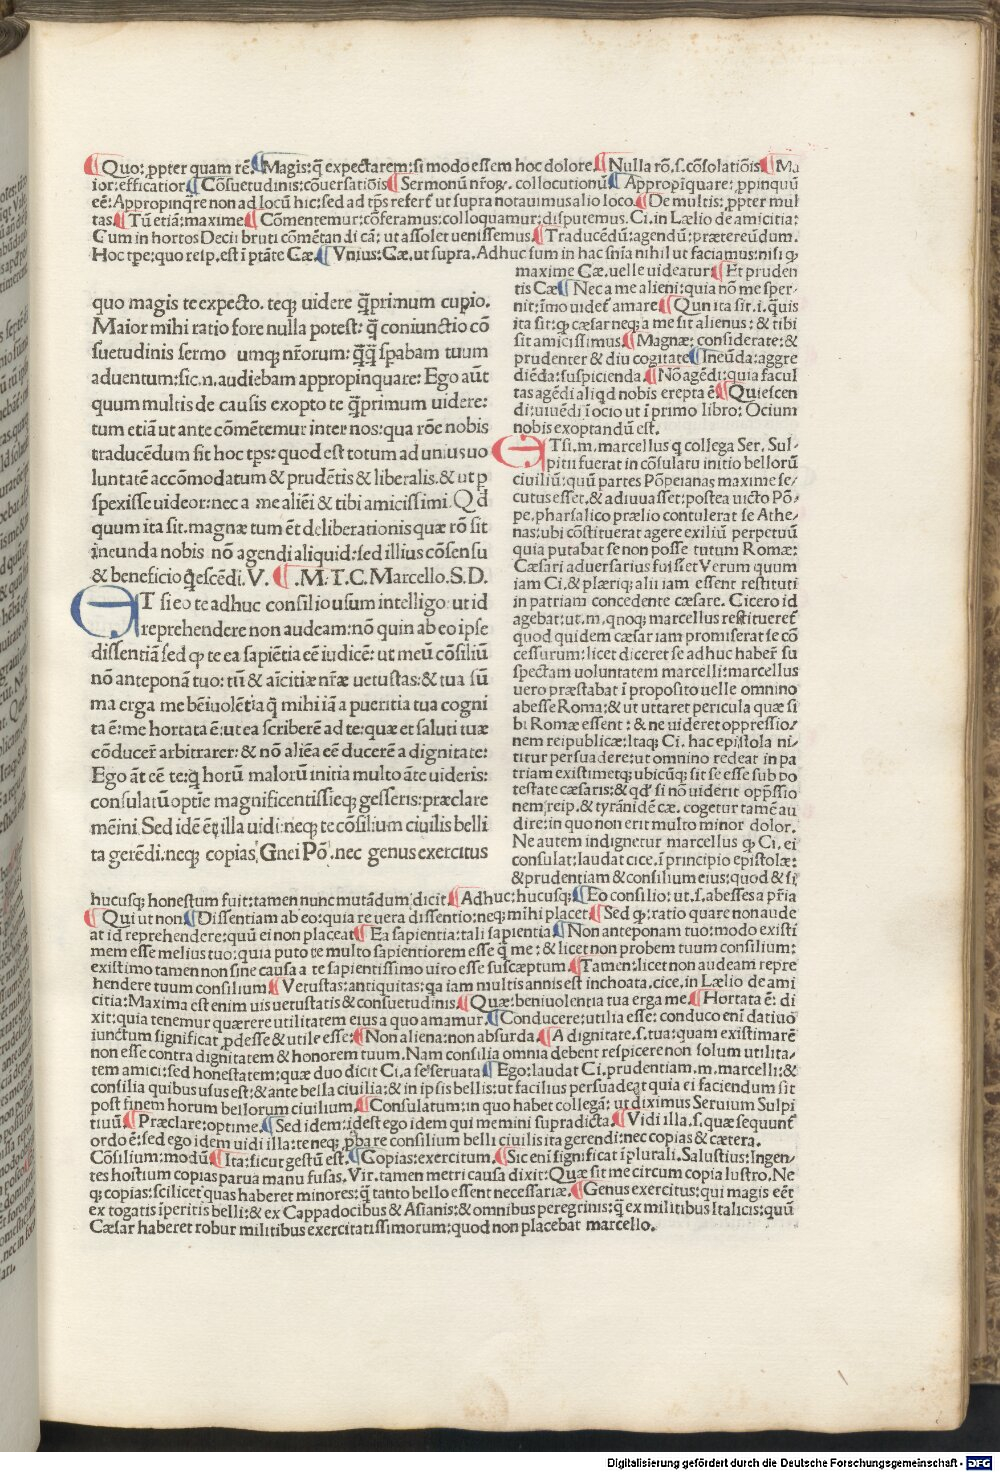 ¶Quo: ꝓpter quam rē. ¶Magis: q̄ expectarem: si modo essem hoc dolore. ¶Nulla rō. s. cōsolatiōis ¶Ma
ior: efficatior ¶Cōsuetudinis: cōuersatiōis ¶Sermonū nr̄oꝝ. collocutionū ¶Appropīquare: ꝓpinquū
eē: Appropinq̄re non ad locū hic: sed ad tp̄s refert̄ ut supra notauimus alio loco. ¶De multis: ꝓpter mul
tas ¶Tū etiā: maxime ¶Cōmentemur: cōferamus: colloquamur: disputemus. Ci. in Lælio de amicitia:
Cum in hortos Decii bruti cōmētandi cā: ut assolet uenissemus. ¶Traducēdū: agendū: prætereūdum.
Hoc tp̄e: quo reip. est ī ptāte Cæ. ¶Vnius: Cæ. ut supra. Adhuc sum in hac snīa nihil ut faciamus: nisi ꝙ
maxime Cæ. uelle uideatur ¶Et pruden
tis Cæ ¶Nec a me alieni: quia nō me sper-
nit: īmo uidet̄ amare ¶Qun ita sit. i. q̄uis
ita sit: ꝙ cæsar neqꝫ a me sit alienus: & tibi
sit amicissimus. ¶Magnæ: considerate: &
prudenter & diu cogitate ¶Ineūda: aggre
diēda: suspicienda. ¶Nō agēdi: quia facul
tas agēdi aliqd nobis erepta ē ¶Quiescen
di: uiuēdi ī ocio ut ī primo libro: Ocium
nobis exoptandū est.
quo magis te expecto. teqꝫ uidere q̄prīmum cupio.
Maior mihi ratio fore nulla potest: q̄ coniunctio cō
suetudinis sermo umqꝫ nr̄orum: q̄q̄ spabam tuum
aduentum: sic. n. audiebam appropinquare: Ego aūt
quum multis de causis exopto te q̄primum uidere:
tum etiā ut ante cōmētemur inter nos: qua rōe nobis
traducēdum sit hoc tp̄s: quod est totum ad unius uo
luntatē accōmodatum & prudētis & liberalis. & ut p
spexisse uideor: nec a me aliēi & tibi amicissimi. Qd̄
quum ita sit. magnæ tum ēt deliberationis quæ rō sit
ineunda nobis nō agendi aliquid: sed illius cōsensu
& beneficio q̄escēdi. V. ¶.M. T. C. Marcello. S. D.
ET si eo te adhuc consilio usum intelligo: ut id
reprehendere non audeam: nō quin ab eo ipse
dissentiā sed ꝙ te ea sapiētia eē iudicē: ut meū cōsiliū
nō anteponā tuo: tū & aīcitiæ nr̄æ uetustas: & tua sū
ma erga me bēiuolētia q̄ mihi iā a pueritia tua cogni
ta ē: me hortata ē: ut ea scriberē ad te: quæ et saluti tuæ
cōducer̄ arbitrarer: & nō aliēa eē ducerē a dignitate:
Ego āt eē te: q̄ horū malorū initia multo āte uideris:
consulatū optīe magnificentissieqꝫ gesseris: præclare
mēini. Sed idē ēt illa uidi: neqꝫ te cōsilium ciuilis belli
ta gerēdi: neqꝫ copias Gnei Pō. nec genus exercitus
ETsi. m. marcellus q collega Ser. Sul-
pitii fuerat in cōsulatu initio bellorū
ciuiliū: quū partes Pōpeianas maxime se-
cutus esset. & adiuuasset: postea uicto Pō-
pe. pharsalico prælio contulerat se Athe-
nas: ubi cōstituerat agere exiliū perpetuū
quia putabat se non posse tutum Romæ:
Cæsari aduersarius fuisset Verum quum
iam Ci. & plæriqꝫ alii iam essent restituti
in patriam concedente cæsare. Cicero id
agebat: ut. m. quoqꝫ marcellus restitueret̄
quod quidem cæsar iam promiserat se cō
cessurum: licet diceret se adhuc haber̄ su
spectam uoluntatem marcelli: marcellus
uero præstabat ī proposito uelle omnino
abesse Roma: & ut uitaret pericula quæ si
bi Romæ essent: & ne uideret oppressio-
nem reipublicæ: Itaqꝫ Ci. hac epistola ni-
titur persuadere: ut omnino redeat in pa
triam existimetqꝫ ubicūqꝫ sit se esse sub po
testate cæsaris: & qd̄ si nō uiderit opp̄ssio
nem reip. & tyrānidē cæ. cogetur tamē au
dire: in quo non erit multo minor dolor.
Ne autem indignetur marcellus ꝙ Ci. ei
consulat: laudat cice. ī principio epistolæ:
& prudentiam & consilium eius: quod & si
hucusqꝫ honestum fuit: tamen nunc mutādum dicit ¶Adhuc: hucusqꝫ ¶Eo consilio: ut. s. abesses a pr̄ia
¶Qui ut non ¶Dissentiam ab eo: qua re uera dissentio: neqꝫ mihi placet ¶Sed ꝙ: ratio quare non aude
at id reprehendere: quū ei non placeat ¶Ea sapientia: tali sapientia ¶Non anteponam tuo: modo existi
mem esse melius tuo: quia puto te multo sapientiorem esse q̄ me: & licet non probem tuum consilium:
existimo tamen non sine causa a te sapientissimo uiro esse susceptum. ¶Tamen: licet non audeam repre
hendere tuum consilium ¶Vetustas: antiquitas: qa iam multis annis est inchoata. cice. in Lælio de ami
citia: Maxima est enim uis uetustatis & consuetudinis. ¶Quæ: beniuolentia tua erga me. ¶Hortata ē: di
xit: quia tenemur quærere utilitatem eius a quo amamur. ¶Conducere: utilia esse: conduco enī datiuo
iunctum significat ꝓdesse & utile esse: ¶Non aliena: non absurda. ¶A dignitate. s. tua: quam existimarē
non esse contra dignitatem & honorem tuum. Nam consilia omnia debent respicere non solum utilita-
tem amici: sed honestatem: quæ duo dicit Ci. a se seruata ¶Ego: laudat Ci. prudentiam. m. marcelli: &
consilia quibus usus est: & ante bella ciuilia: & in ipsis bellis: ut facilius persuadeat quia ei faciendum sit
post finem horum bellorum ciuilium. ¶Consulatum: in quo habet collegā: ut diximus Seruium Sulpi
tiuū ¶Præclare: optime. ¶Sed idem: idest ego idem qui memini supradicta. ¶Vidi illa. s. quæ sequunt̄
ordo ē: sed ego idem uidi illa: te neqꝫ ꝓbare consilium belli ciuilis ita gerendi: nec copias & cætera.
Cōsilium: modū ¶Ita: sicut gestū est. ¶Copias: exercitum. ¶Sic enī significat ī plurali. Salustius: Ingen-
tes hostium copias parua manu fusas. Vir. tamen metri causa dixit: Quæ sit me circum copia lustro. Ne
qꝫ copias: scilicet quas haberet minores: q̄ tanto bello essent necessariæ. ¶Genus exercitus: qui magis eēt
ex togatis īperitis belli: & ex Cappadocibus & Asianis: & omnibus peregrinis: q̄ ex militibus Italicis: quū
Cæsar haberet robur militibus exercitatissimorum: quod non placebat marcello.
Digitalisierung gefördert durch die Deutsche Forschungsgemeinschaft - DFG